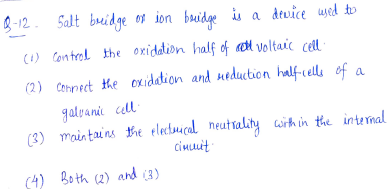 Q-12. Salt bridge or ion bridge is a device used to
(1) Control the oxidation half of voltaic cell.
(2) Connect the oxidation and reduction half-cells of a
galvanic cell.
(3) maintains the electrical neutrality within the internal
circuit.
(4) Both (2) and (3)